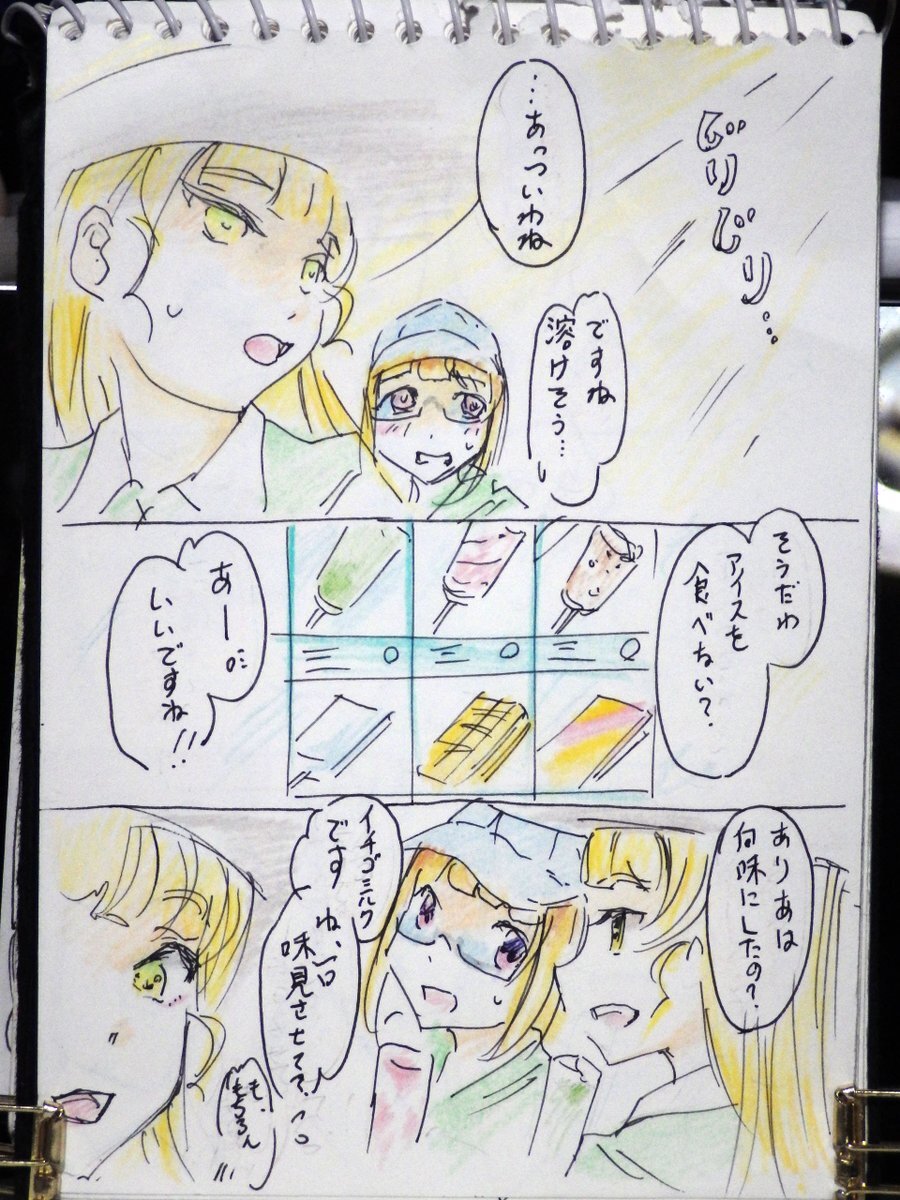 じりじり…
…あっついわね
ですね
溶けそう…
そうだわ
アイスを
食べない?
あー。
いいですね!!
ありあは
何味にしたの?
イチゴミルク
です
ね、一口
味見させてて。
も、
もちろん